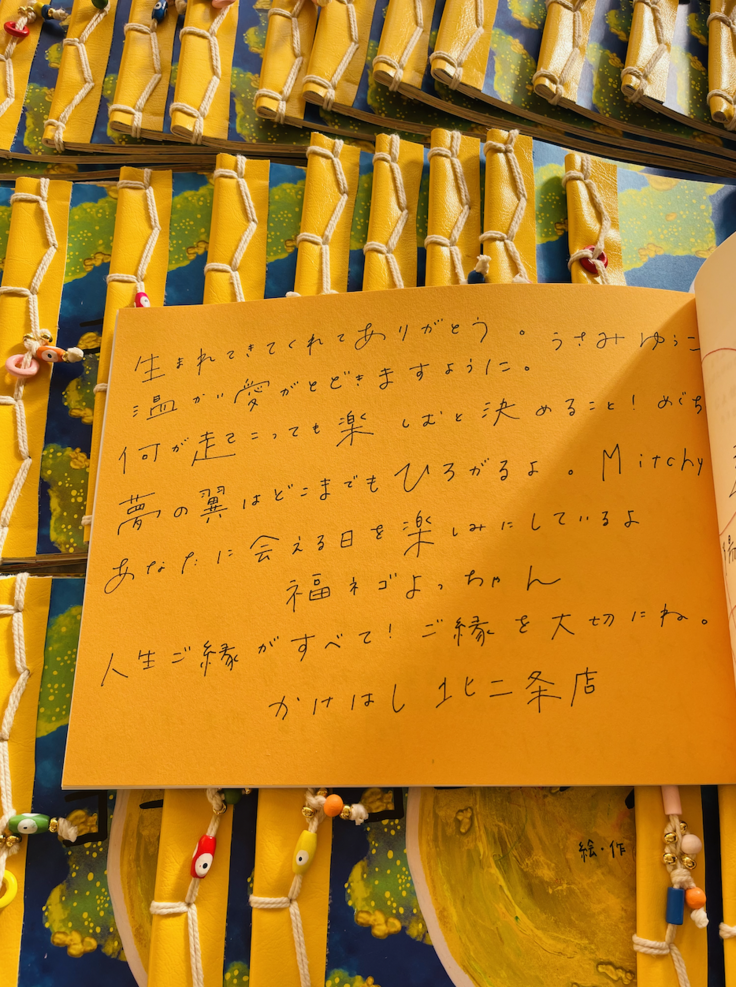 生まれてきてくれてありがとう。うさみゆうこ
温かい愛がとどきますように。
何が起こっても楽しむと決めること！めぐち
夢の翼はどこまでもひろがるよ。Mitchy
あなたに会える日を楽しみにしているよ
福ネゴよっちゃん
人生ご縁がすべて！ご縁を大切にね。
かけはし 北二条店
絵・作